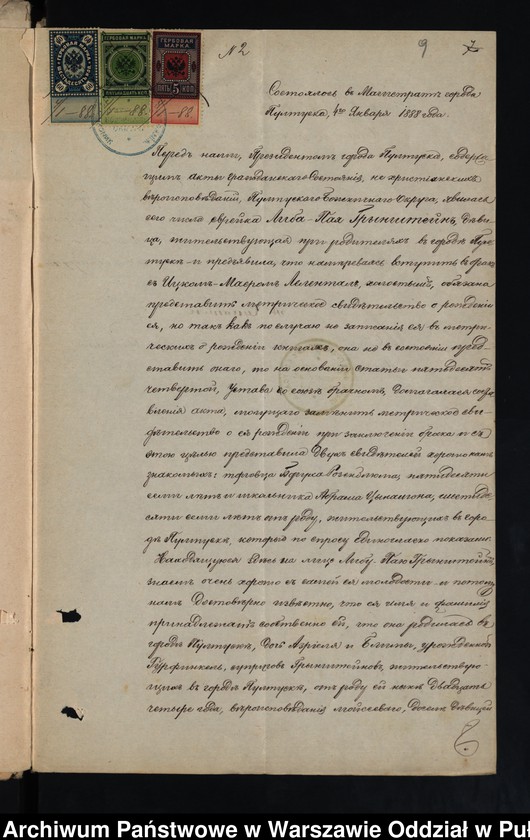 № 2
9
7
ГЕРБОВАЯ МАРКА
ГЕРБОВАЯ МАРКА
ПЯТЬ 5 КОП.
Состоялось в Магистрате города
Пултуска, 4го Января 1888 года.
Передъ нами, Президентомъ города Пултуска, содержа-
щимъ акты гражданскаго состоянія, не христіанскихъ
вѣроисповѣданій, Пултускаго округа, явилась
сего числа еврейка Либа-Пая Грынштейнъ, дѣви-
ца, жительствующая при родителяхъ въ городѣ Пул-
тускѣ и предъявила, что намѣреваясь вступить въ бракъ
съ Ицкомъ-Маеромъ, обязана
представить метрическое свидѣтельство о рожденіи
ея, но такъ какъ по случаю не записанія ея въ метри-
ческихъ о рожденіи книгахъ, она не въ состояніи пред-
ставить онаго, то на основаніи статьи пятьдесятъ
четвертой, Устава о союзѣ брачномъ, домогалась соста-
вленія акта, могущаго замѣнить метрическое сви-
дѣтельство о ея рожденіи при заключеніи брака и съ
этою цѣлью представила двухъ свидѣтелей хорошо намъ
знакомыхъ: торговца Розенблюма, пятидесяти
семи лѣтъ и школьника Абрама, шестиде-
сяти семи лѣтъ отъ роду, жительствующихъ въ горо-
дѣ Пултускѣ, которые по спросу единогласно показали:
Находящуюся здѣсь на лицо Либу-Паю Грынштейнъ,
знаемъ очень хорошо съ самой ея молодости и потому
намъ достовѣрно извѣстно, что ея имя и фамилія
принадлежатъ собственно ей, что она родилась въ
городѣ Пултускѣ, дочь и, урожденной
Гурфинкель, супруговъ Грынштейновъ, жительствую-
щихъ въ городѣ Пултускѣ, отъ роду ей нынѣ двадцать
четыре года, вѣроисповѣданія Мойсеева, доселѣ дѣвица
Archiwum Państwowe w Warszawie Oddział w Puł